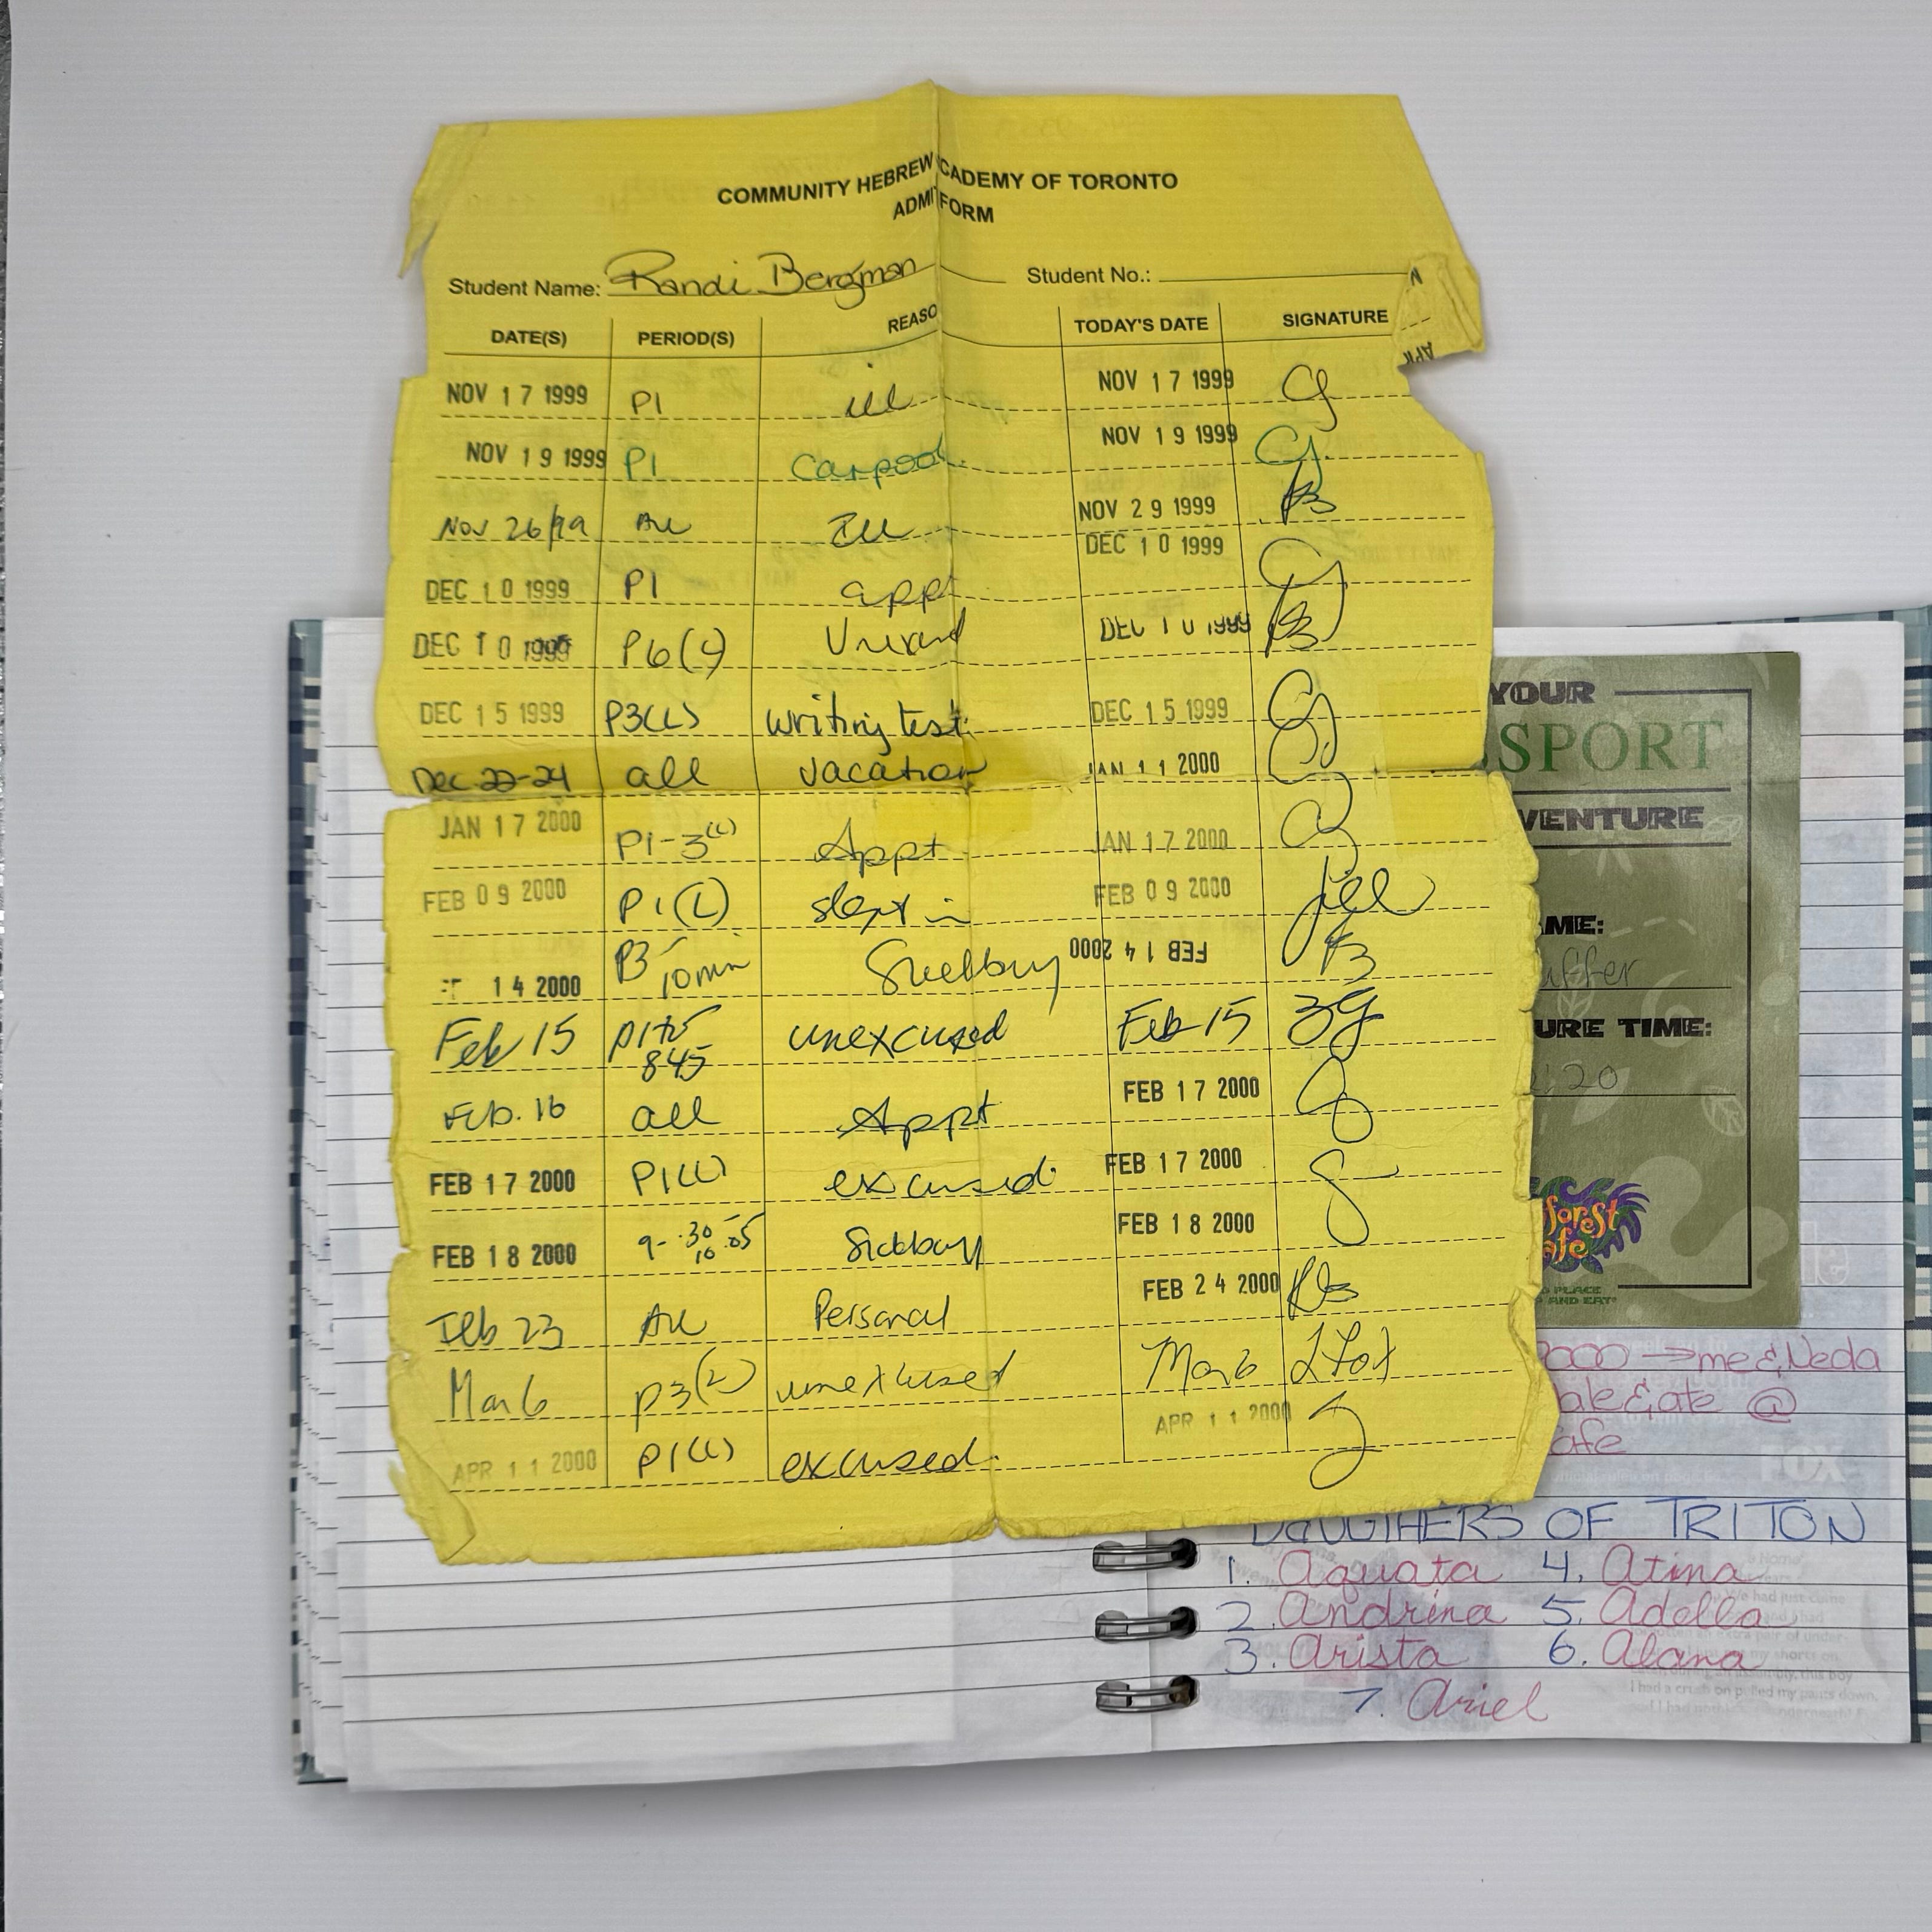 COMMUNITY HEBREW CADEMY OF TORONTO
ADMI FORM
Student Name: Randi Bergman Student No.:
DATE(S) PERIOD(S) REASO TODAY'S DATE SIGNATURE
NOV 17 1999 P1 ill NOV 17 1999 CJ
NOV 19 1999 P1 Carpool NOV 19 1999 CJ
Nov 26/99 All Ill NOV 29 1999
DEC 10 1999 P1 appt DEC 10 1999
DEC 10 1999 P6(L) DEC 10 1999
DEC 15 1999 P3(L) writing test DEC 15 1999
Dec 22-24 all vacation JAN 11 2000
JAN 17 2000 P1-3(L) Appt JAN 17 2000
FEB 09 2000 P1(L) slept in FEB 09 2000 Jill
14 2000 P3 10 min FEB 14 2000
Feb 15 P1 to 845 unexcused Feb 15
Feb. 16 all Appt FEB 17 2000
FEB 17 2000 P1(L) excused FEB 17 2000
FEB 18 2000 9-.30 10.05 FEB 18 2000
Feb 23 All Personal FEB 24 2000
Mar 6 P3(L) unexcused Mar 6
APR 11 2000 P1(L) excused. APR 11 2000
YOUR
SSPORT
VENTURE
AME:
uffer
URE TIME:
:20
forest
afe
PLACE
AND EAT
2000 → me & Neda
ale & ate @
afe
DAUGTHERS OF TRITON
1. Aquata 4. Atina
2. Andrina 5. Adella
3. Arista 6. Alana
7. Ariel